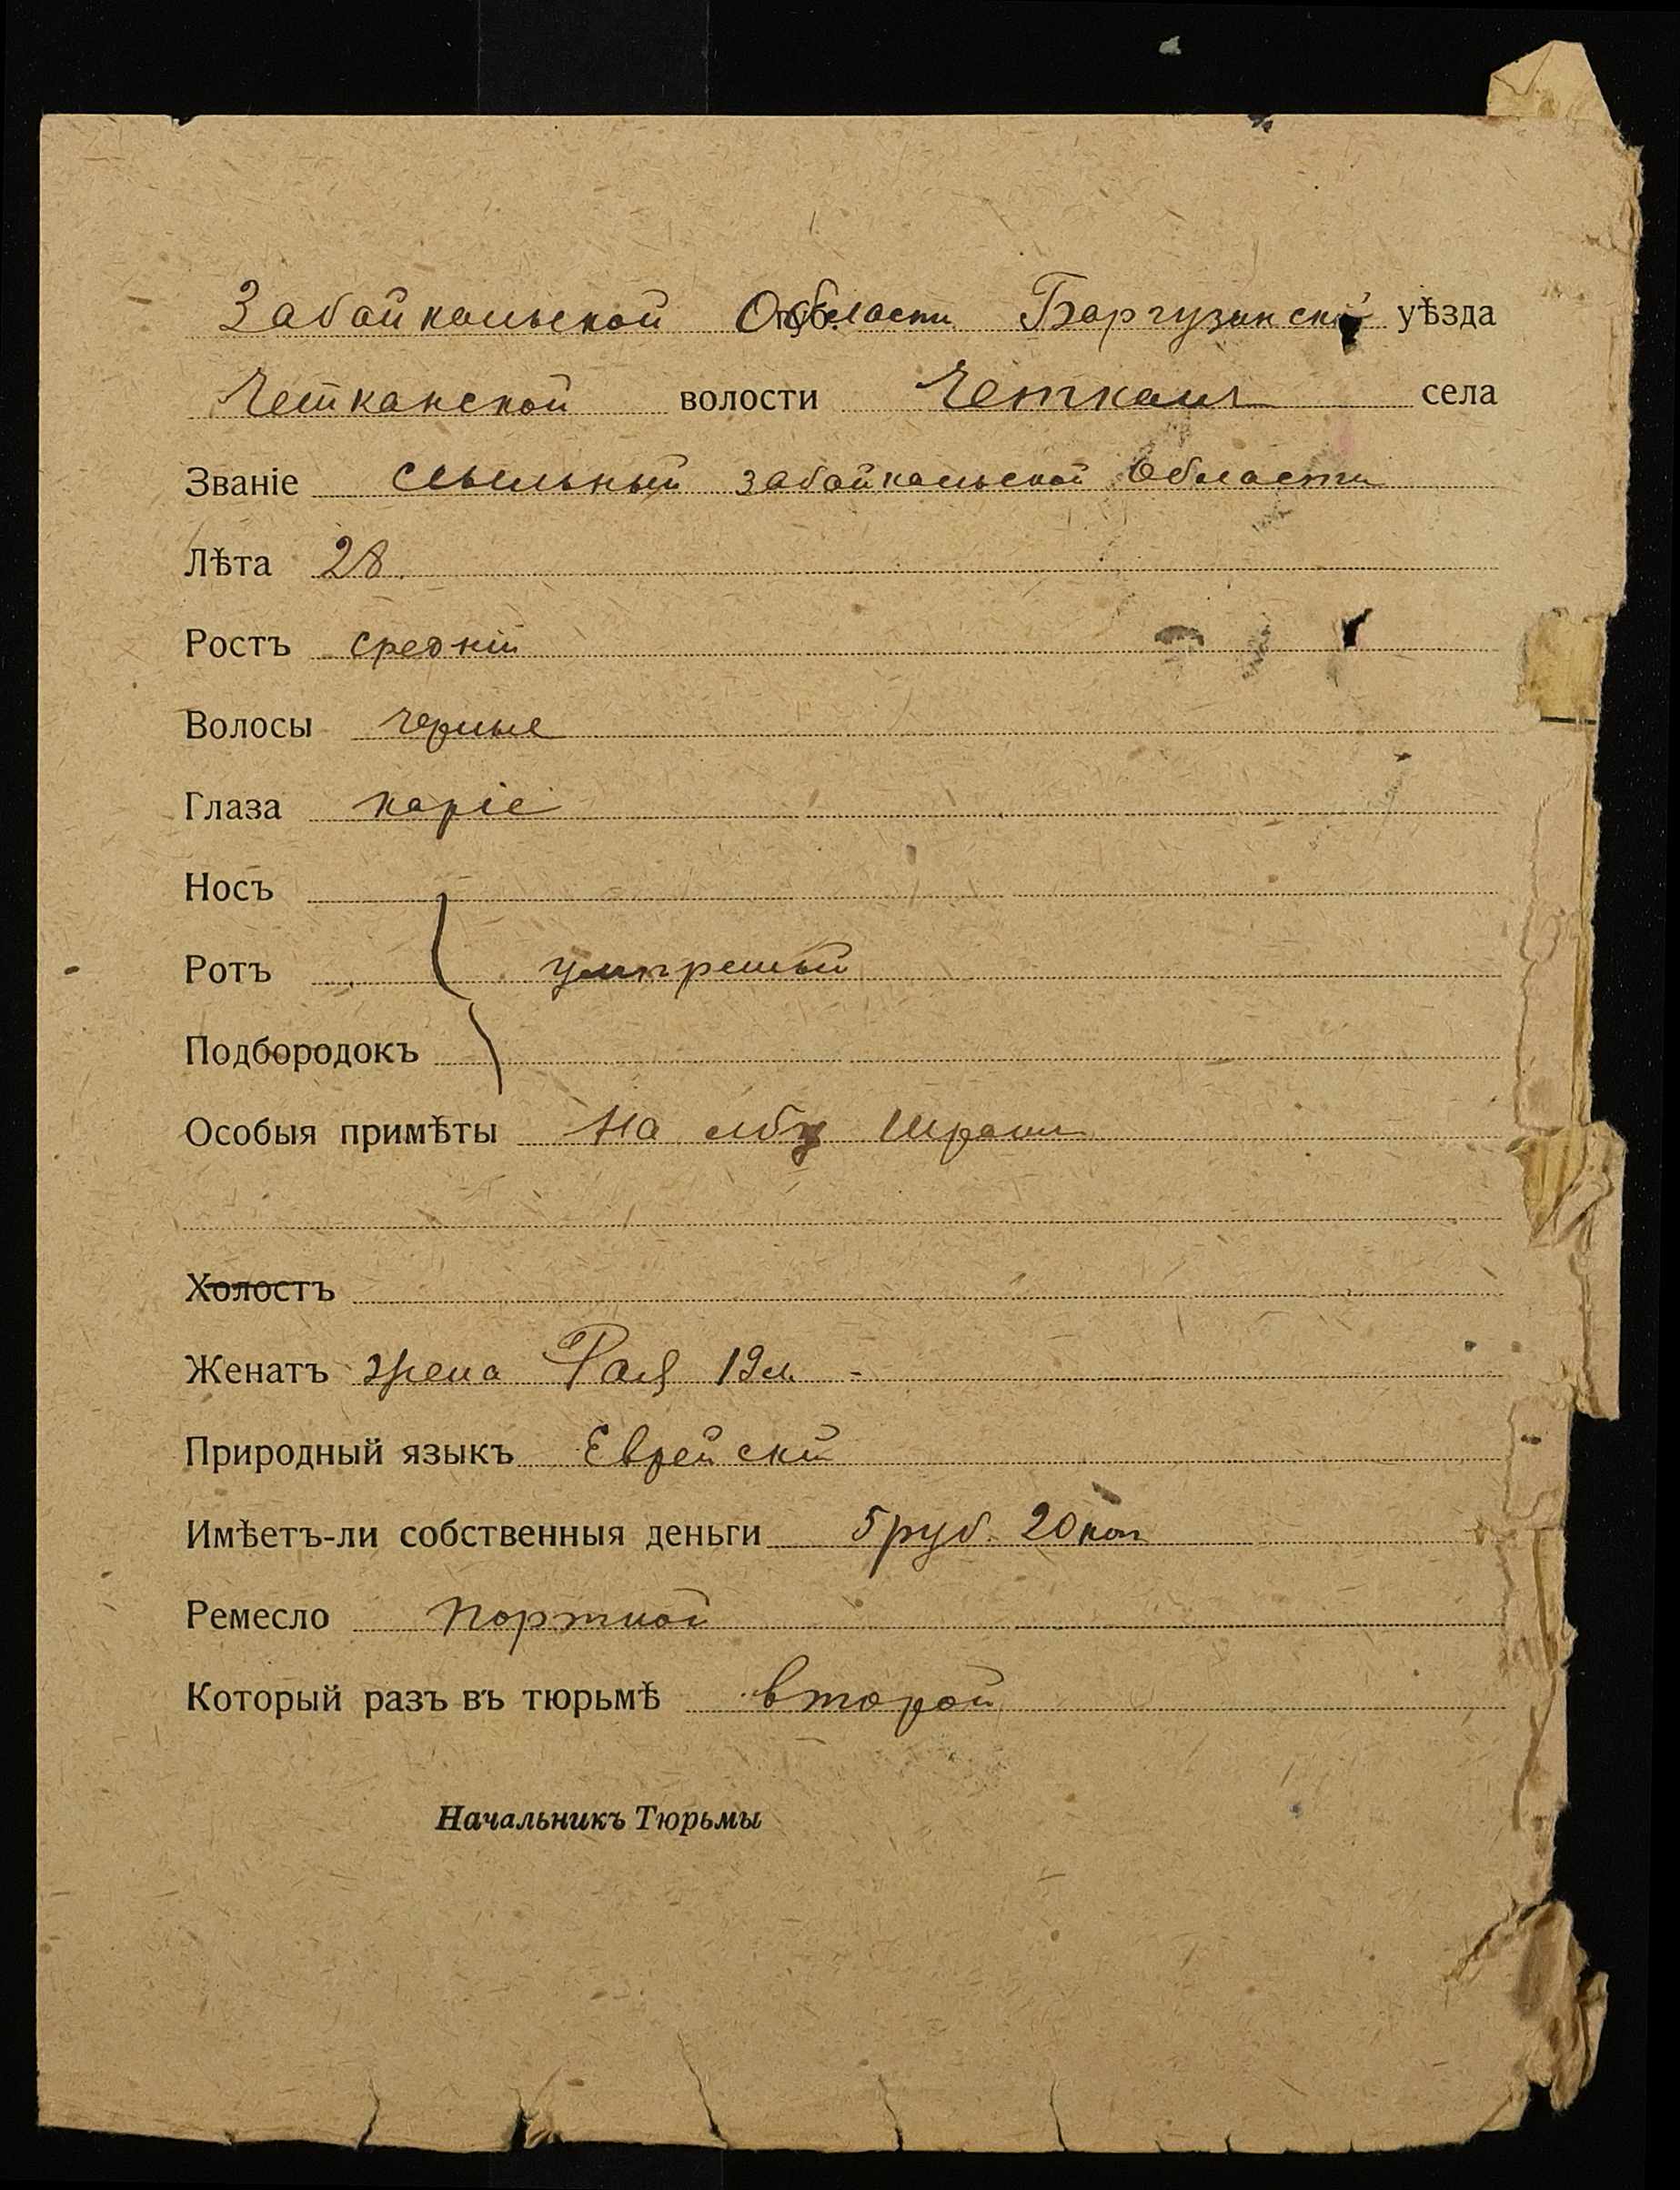 Забайкальской Области Баргузинск. уѣзда
Четканской волости Четкань села
Званіе ссыльный Забайкальской Области
Лѣта 28.
Ростъ средній
Волосы черные
Глаза каріе
Носъ
Ротъ умѣреный
Подбородокъ
Особыя примѣты На лбу шрамы
Холостъ
Женатъ жена Рая 19 л. -
Природный языкъ Еврейскій
Имѣетъ-ли собственныя деньги 5 руб. 20 коп
Ремесло портной
Который разъ въ тюрьмѣ второй
Начальникъ Тюрьмы